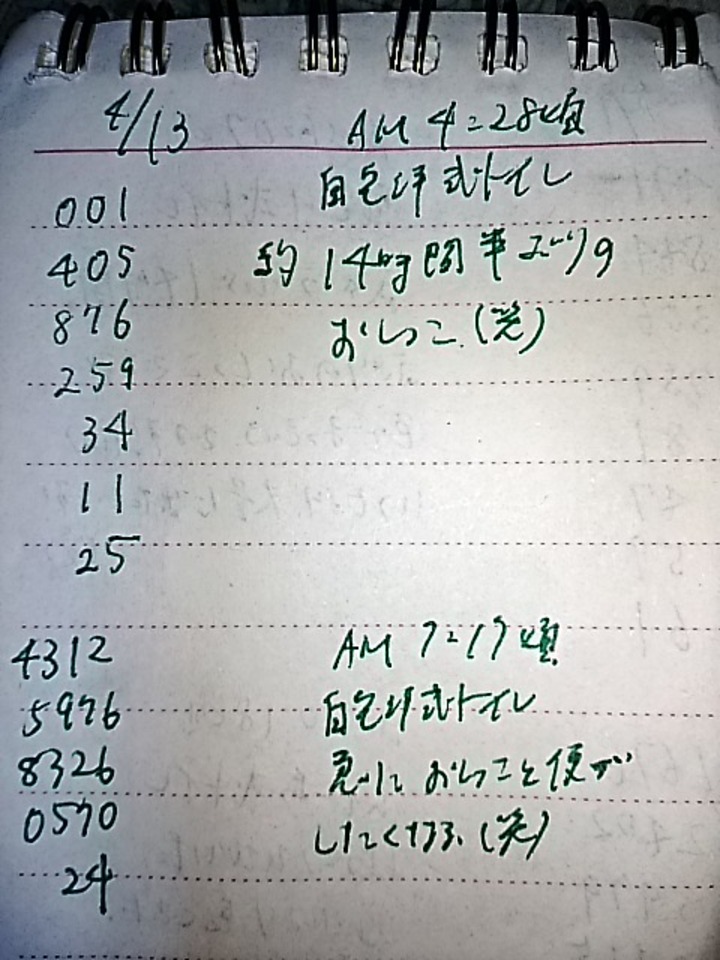 4/13 AM 4:28頃
001 自宅洋式トイレ
405 約14時間半ぶりの
876 おしっこ。(笑)
259
34
11
25
4312 AM 7:17頃
5976 自宅洋式トイレ
8326 急におしっこと便が
0570 したくなる。(笑)
24